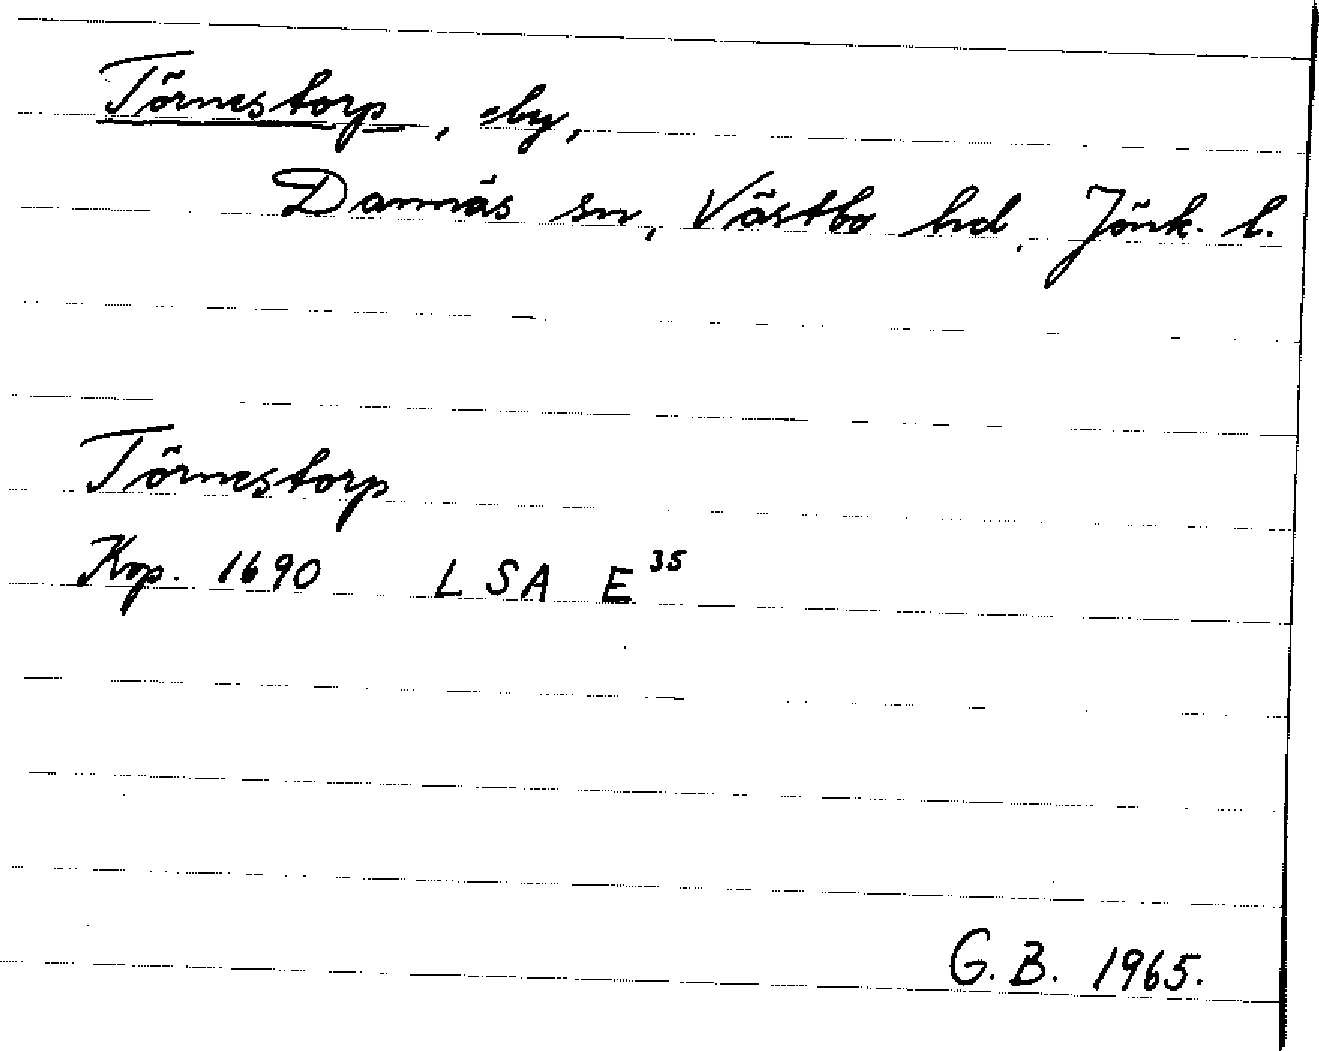 Törnestorp, by,
Dannäs sn, Västbo hd, Jönk. l.
Törnestorp
Kop. 1690 LSA E 35
G. B. 1965.